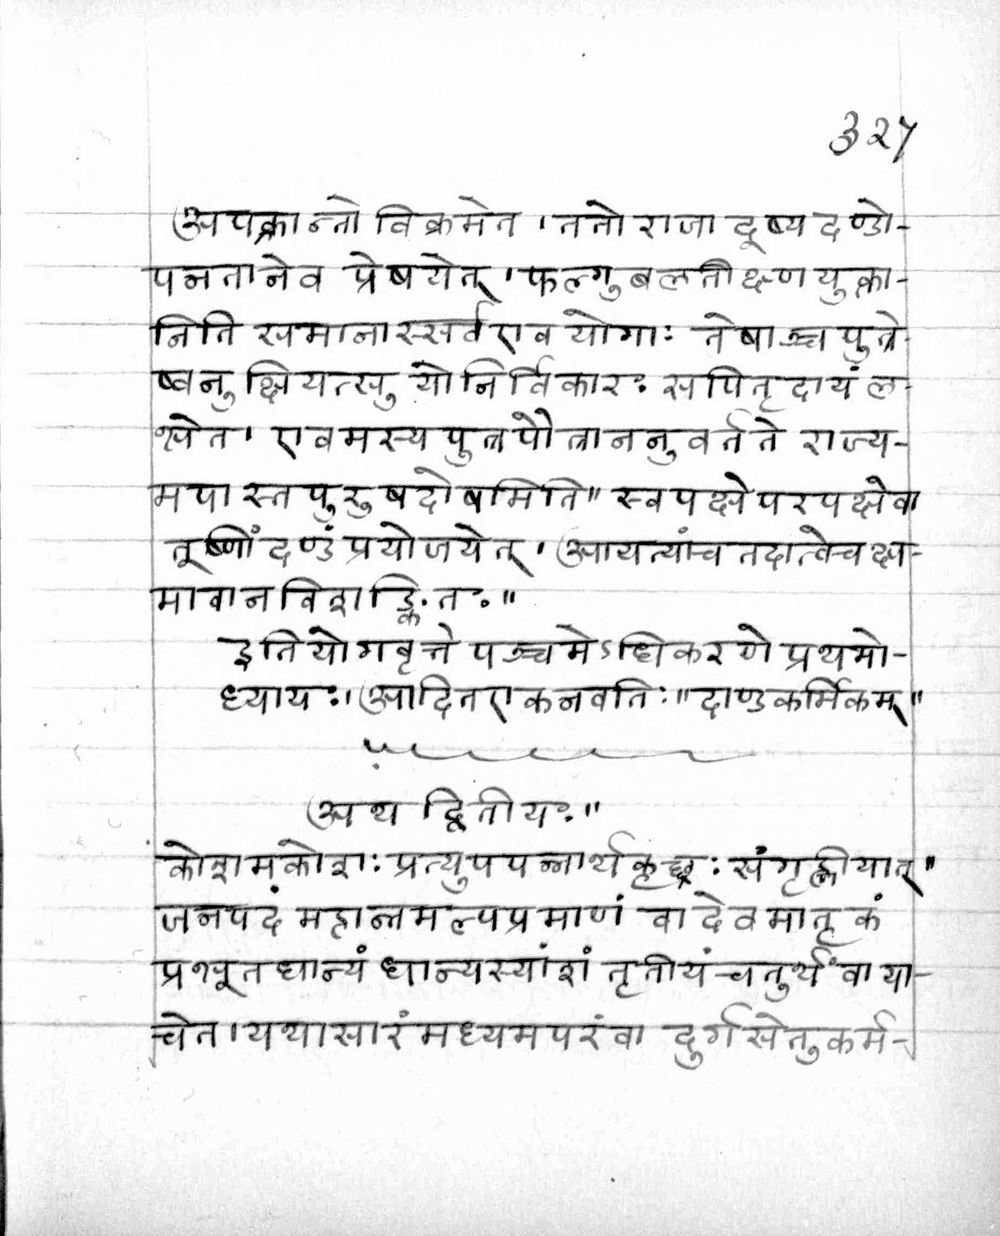 327
अपक्रान्तो विक्रमेत । ततो राजा दूष्यदण्डो-
पनतानेव प्रेषयेत् । फल्गुबलतीक्ष्णयुक्ता-
निति समानास्सर्व एव योगाः तेषाञ्च पुत्रे-
ष्वनुक्षियत्सु यो निर्विकारः स पितृदायं ल-
भेत । एवमस्य पुत्रपौत्राननुवर्तते राज्य-
मपास्तपुरुषदोषमिति ॥ स्वपक्षे परपक्षे वा
तूष्णीं दण्डं प्रयोजयेत् । आयत्यां च तदात्वे च क्ष-
मावानविशङ्कितः ॥
इति योगवृत्ते पञ्चमेऽधिकरणे प्रथमो-
ध्यायः । आदित एकनवतिः ॥ दाण्डकर्मिकम् ॥
अथ द्वितीयः ॥
कोशमकोशः प्रत्युपपन्नार्थकृच्छ्रः संगृह्णीयात् ॥
जनपदं महान्तमल्पप्रमाणं वा देवमातृकं
प्रभूतधान्यं धान्यस्यांशं तृतीयं चतुर्थं वा या-
चेत । यथासारं मध्यमपरं वा दुर्गसेतुकर्म-